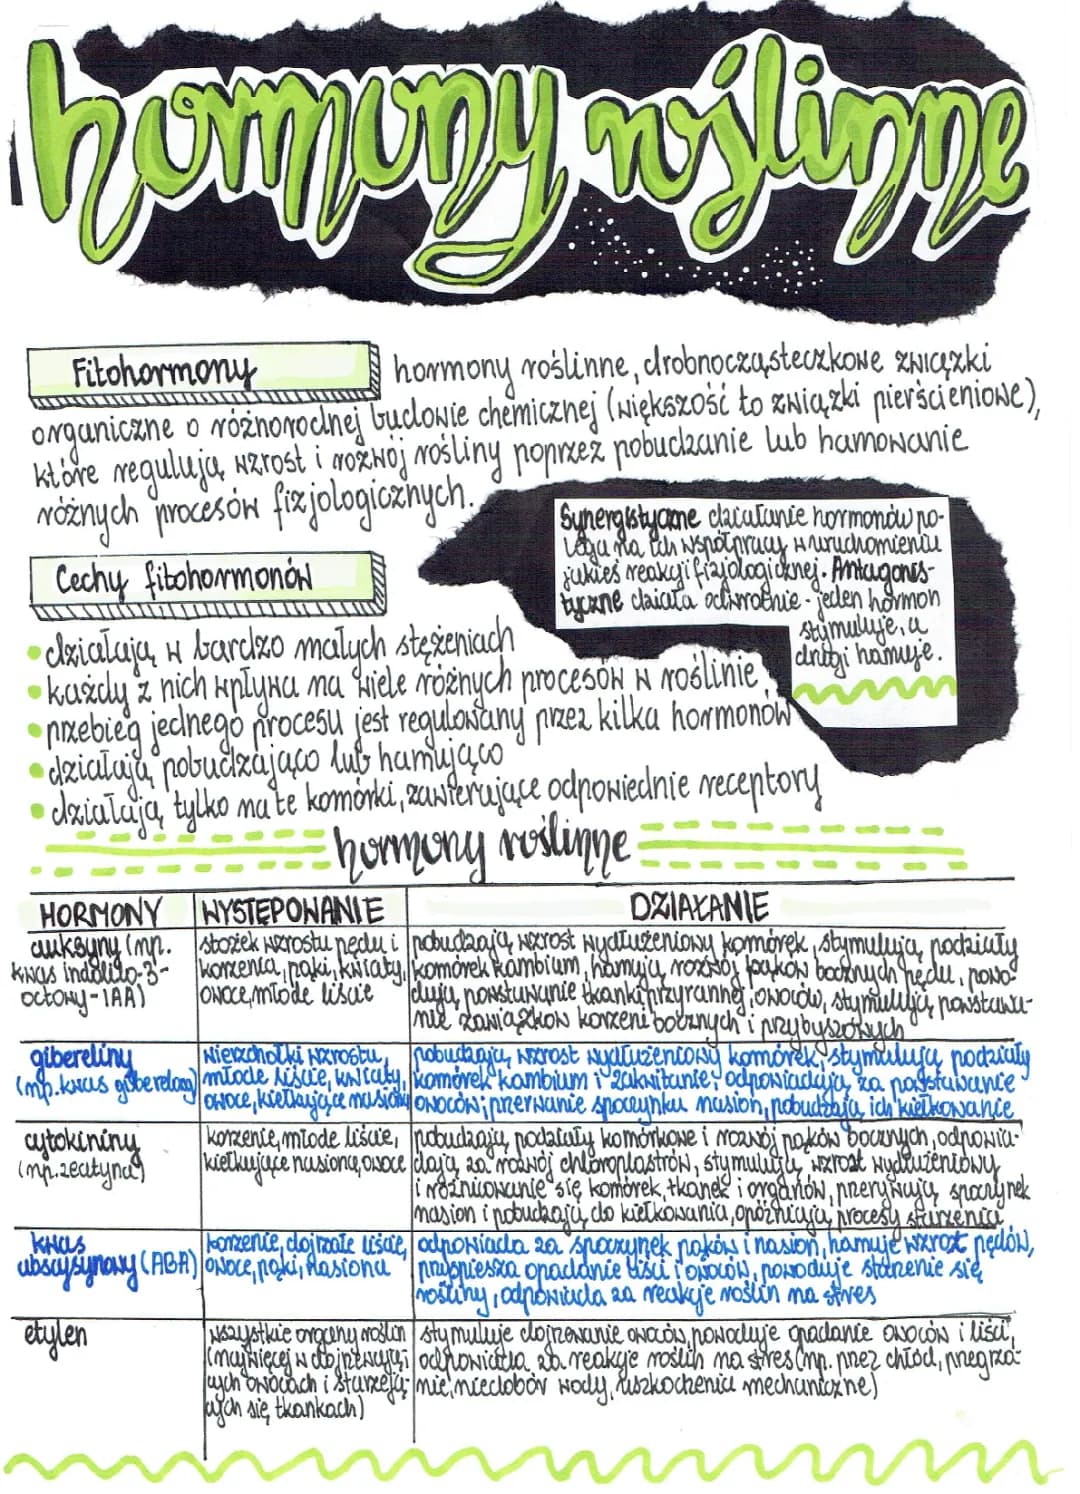 hormony roślinne
Fitohormony
hormony roślinne, drobnocząsteczkowe związki
organiczne o różnorodnej budowie chemicznej (większość to związki pierścieniowe),
które regulują wzrost i rozwój rośliny poprzez pobudzanie lub hamowanie
różnych procesów fizjologicznych.
Synergistyczne działanie hormonów po-
lega na ich współpracy w uruchomieniu
jakieś reakcji fizjologicznej. Antagonis-
tyczne działa odwrotnie - jeden hormon
stymuluje, a
drugi hamuje.
Cechy fitohormonów
• działają w bardzo małych stężeniach
• każdy z nich wpływa na wiele różnych procesów w roślinie
• przebieg jednego procesu jest regulowany przez kilka hormonów
• działają pobudzająco lub hamująco
• działają tylko na te komórki, zawierające odpowiednie receptory
hormony roślinne
HORMONY WYSTĘPOWANIE DZIAŁANIE
auksyny (np.
kwas indolilo-3-
octowy - IAA)
stożek wzrostu pędu i
korzenia, pąki, kwiaty,
owoce, młode liście
pobudzają wzrost wydłużeniowy komórek, stymulują podziały
komórek kambium, hamują rozwój pąków bocznych pędu, powo-
dują powstawanie tkanki przyrannej, owoców, stymulują powstawa-
nie zawiązków korzeni bocznych i przybyszowych
gibereliny
(np. kwas giberelowy)
wierzchołki wzrostu,
młode liście, kwiaty,
owoce, kiełkujące nasiona
pobudzają wzrost wydłużeniowy komórek, stymulują podziały
komórek kambium i zakwitanie; odpowiadają za powstawanie
owoców; przerwanie spoczynku nasion, pobudzają ich kiełkowanie
cytokininy
(np. zeatyna)
korzenie, młode liście,
kiełkujące nasiona, owoce
pobudzają podziały komórkowe i rozwój pąków bocznych, odpowia-
dają za rozwój chloroplastów, stymulują wzrost wydłużeniowy
i różnicowanie się komórek, tkanek i organów, przerywają spoczynek
nasion i pobudzają do kiełkowania, opóźniają procesy starzenia
kwas
abscysynowy (ABA)
korzenie, dojrzałe liście,
owoce, pąki, nasiona
odpowiada za spoczynek pąków i nasion, hamuje wzrost pędów,
przyspiesza opadanie liści i owoców, powoduje starzenie się
rośliny, odpowiada za reakcje roślin na stres
etylen
wszystkie organy roślin
(najwięcej w dojrzewają-
cych owocach i starzeją-
cych się tkankach)
stymuluje dojrzewanie owoców, powoduje opadanie owoców i liści,
odpowiada za reakcje roślin na stres (np. przez chłód, przegrza-
nie, niedobór wody, uszkodzenia mechaniczne)